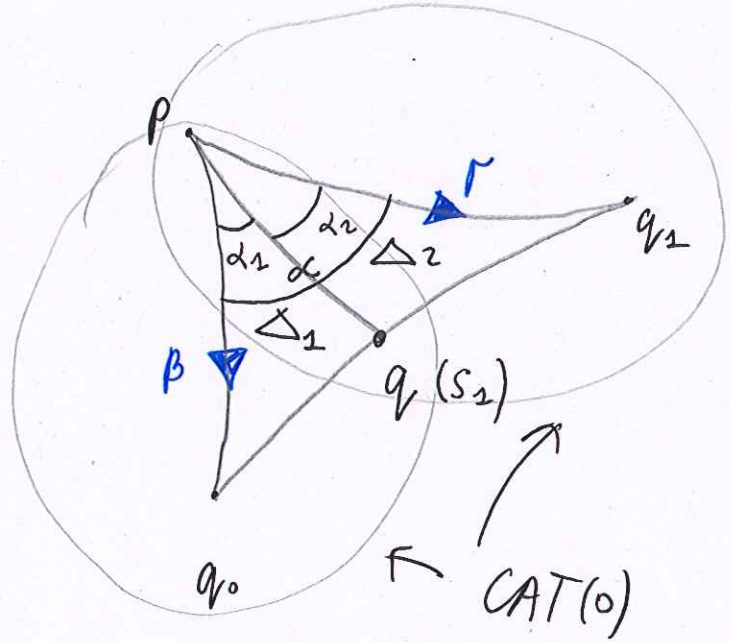 p
γ
q₁
α₁
α₂
α
Δ₂
Δ₁
β
q(s₁)
q₀
CAT(0)